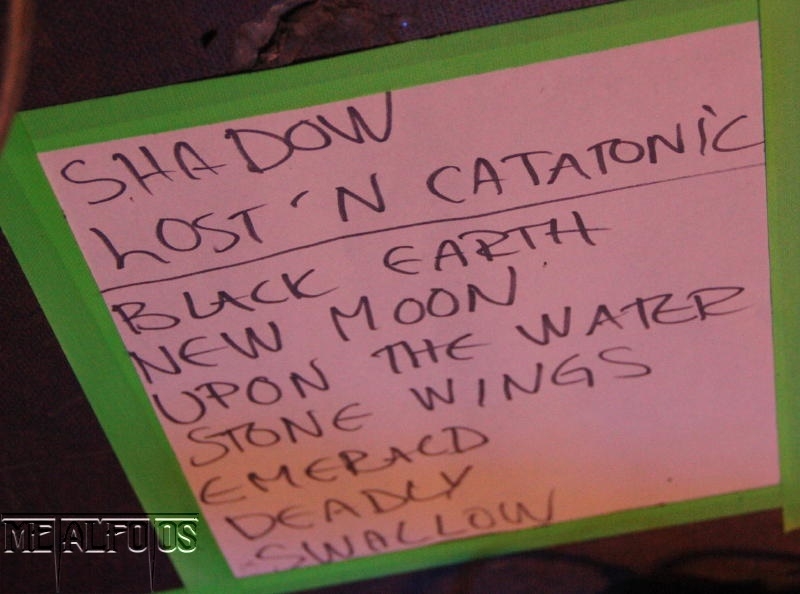 SHADOW
LOST 'N CATATONIC
BLACK EARTH
NEW MOON
UPON THE WATER
STONE WINGS
EMERALD
DEADLY
SWALLOW
METALFOTOS